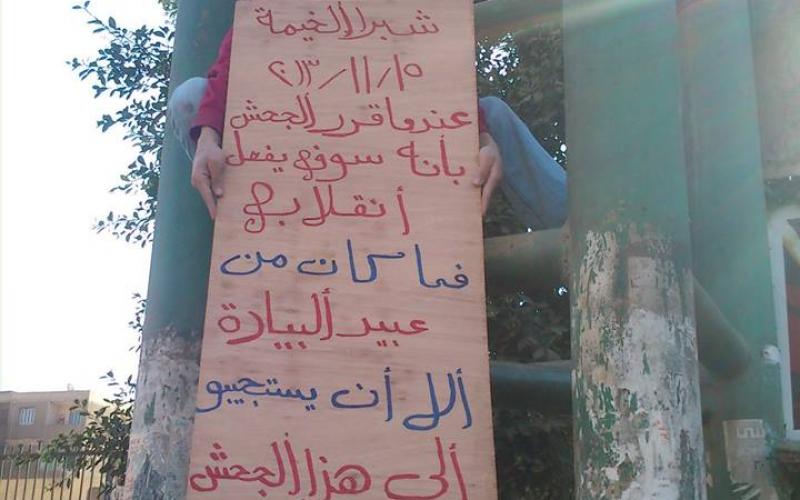 شبرا ألخيمة
٢٠١٣/١١/١٥
عندما قرر الجحش
بأنه سوف يفعل
أنقلاب
فما كان من
عبيد ألبيادة
ألا أن يستجيبو
ألى هذا ألجحش